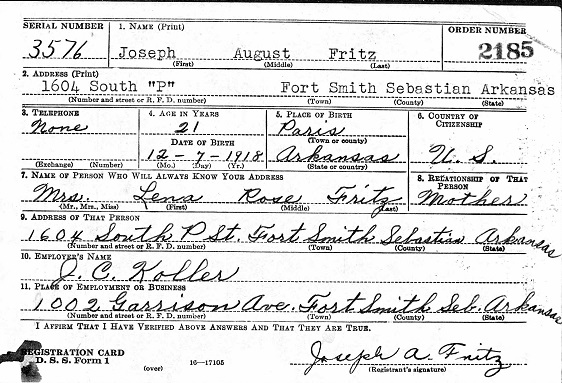 SERIAL NUMBER 1. NAME (Print) ORDER NUMBER
3576 Joseph August Fritz 2185
(First) (Middle) (Last)
2. ADDRESS (Print)
1604 South "P" Fort Smith Sebastian Arkansas
(Number and street or R. F. D. number) (Town) (County) (State)
3. TELEPHONE 4. AGE IN YEARS 5. PLACE OF BIRTH 6. COUNTRY OF CITIZENSHIP
None 21 Paris
(Town or county)
DATE OF BIRTH
12-7-1918 Arkansas U. S.
(Exchange) (Number) (Mo.) (Day) (Yr.) (State or country)
7. NAME OF PERSON WHO WILL ALWAYS KNOW YOUR ADDRESS 8. RELATIONSHIP OF THAT PERSON
Mrs. Lena Rose Fritz Mother
(Mr., Mrs., Miss) (First) (Middle) (Last)
9. ADDRESS OF THAT PERSON
1604 South P St. Fort Smith Sebastian Arkansas
(Number and street or R. F. D. number) (Town) (County) (State)
10. EMPLOYER'S NAME
J. C. Koller
11. PLACE OF EMPLOYMENT OR BUSINESS
1002 Garrison Ave. Fort Smith Seb. Arkansas
(Number and street or R. F. D. number) (Town) (County) (State)
I AFFIRM THAT I HAVE VERIFIED ABOVE ANSWERS AND THAT THEY ARE TRUE.
REGISTRATION CARD
D. S. S. Form 1 16—17105 Joseph A. Fritz
(over) (Registrant's signature)